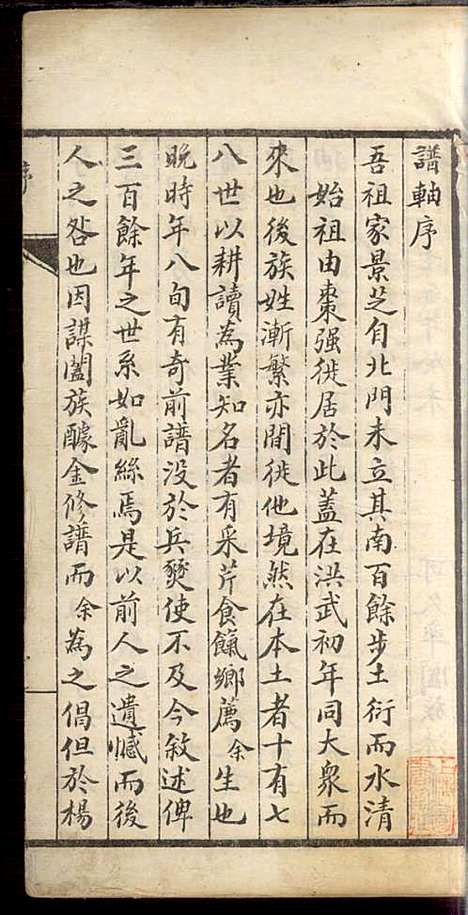 譜軸序
吾祖家景芝自北門未立其南百餘步土衍而水清
始祖由棗强徙居於此蓋在洪武初年同大衆而
來也後族姓漸繁亦間徙他境然在本土者十有七
八世以耕讀為業知名者有采芹食餼鄉薦余生也
晚時年八旬有奇前譜没於兵燹使不及今敘述俾
三百餘年之世系如亂絲焉是以前人之遺憾而後
人之咎也因謀闔族醵金修譜而余為之倡但於楊
序